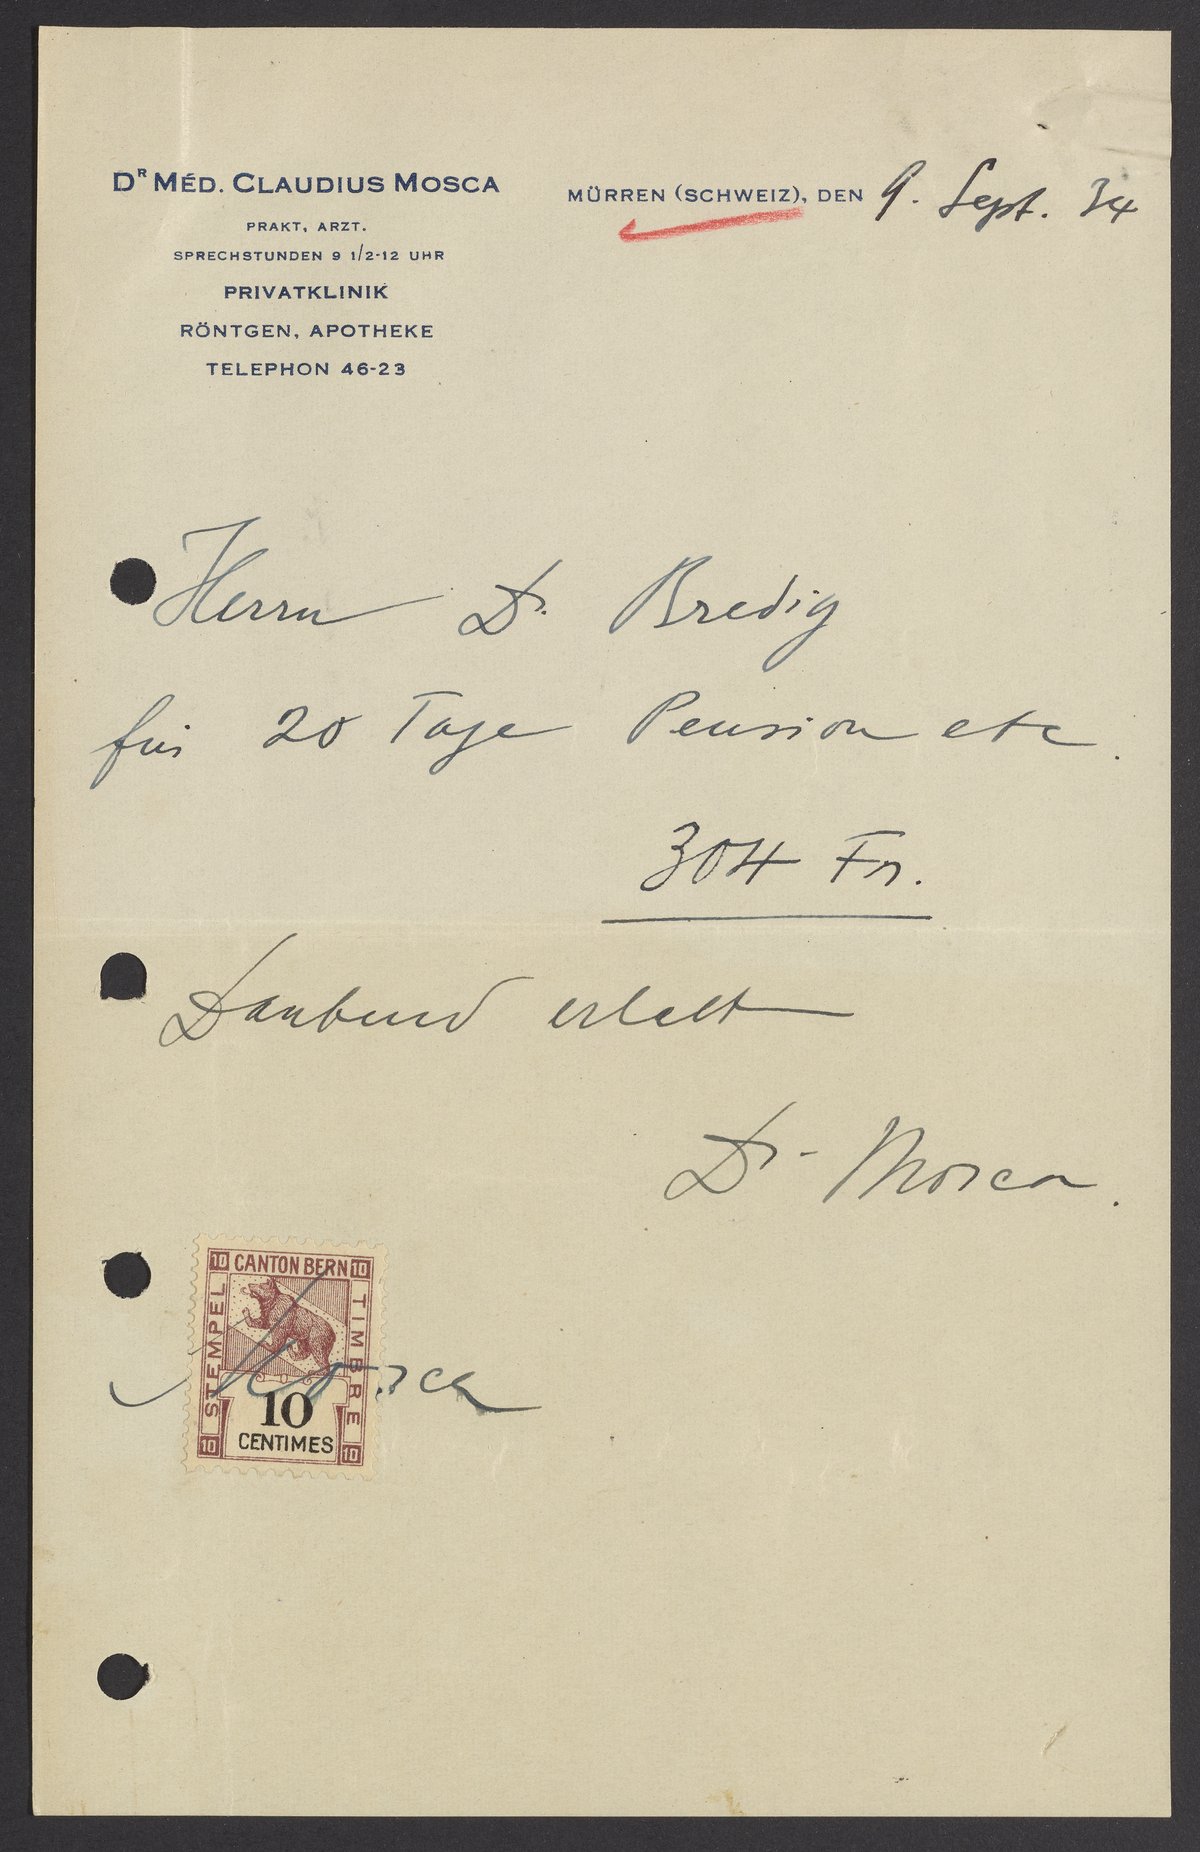 DR MÉD. CLAUDIUS MOSCA
PRAKT, ARZT.
SPRECHSTUNDEN 9 1/2-12 UHR
PRIVATKLINIK
RÖNTGEN, APOTHEKE
TELEPHON 46-23
MÜRREN (SCHWEIZ), DEN 9. Sept. 34
Herrn Dr. Bredig
für 20 Tage Pension etc.
304 Fr.
Dankend erhalt
Dr. Mosca.
10 CANTON BERN 10
STEMPEL
TIMBRE
10
CENTIMES
10 10
Mosca